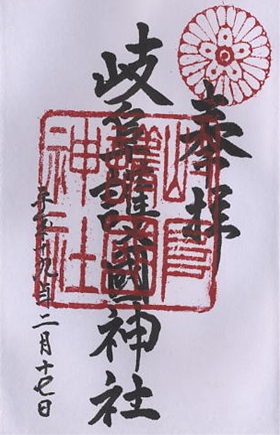 奉拝
岐阜護國神社
平成十九年二月十七日
岐阜
護國
神社